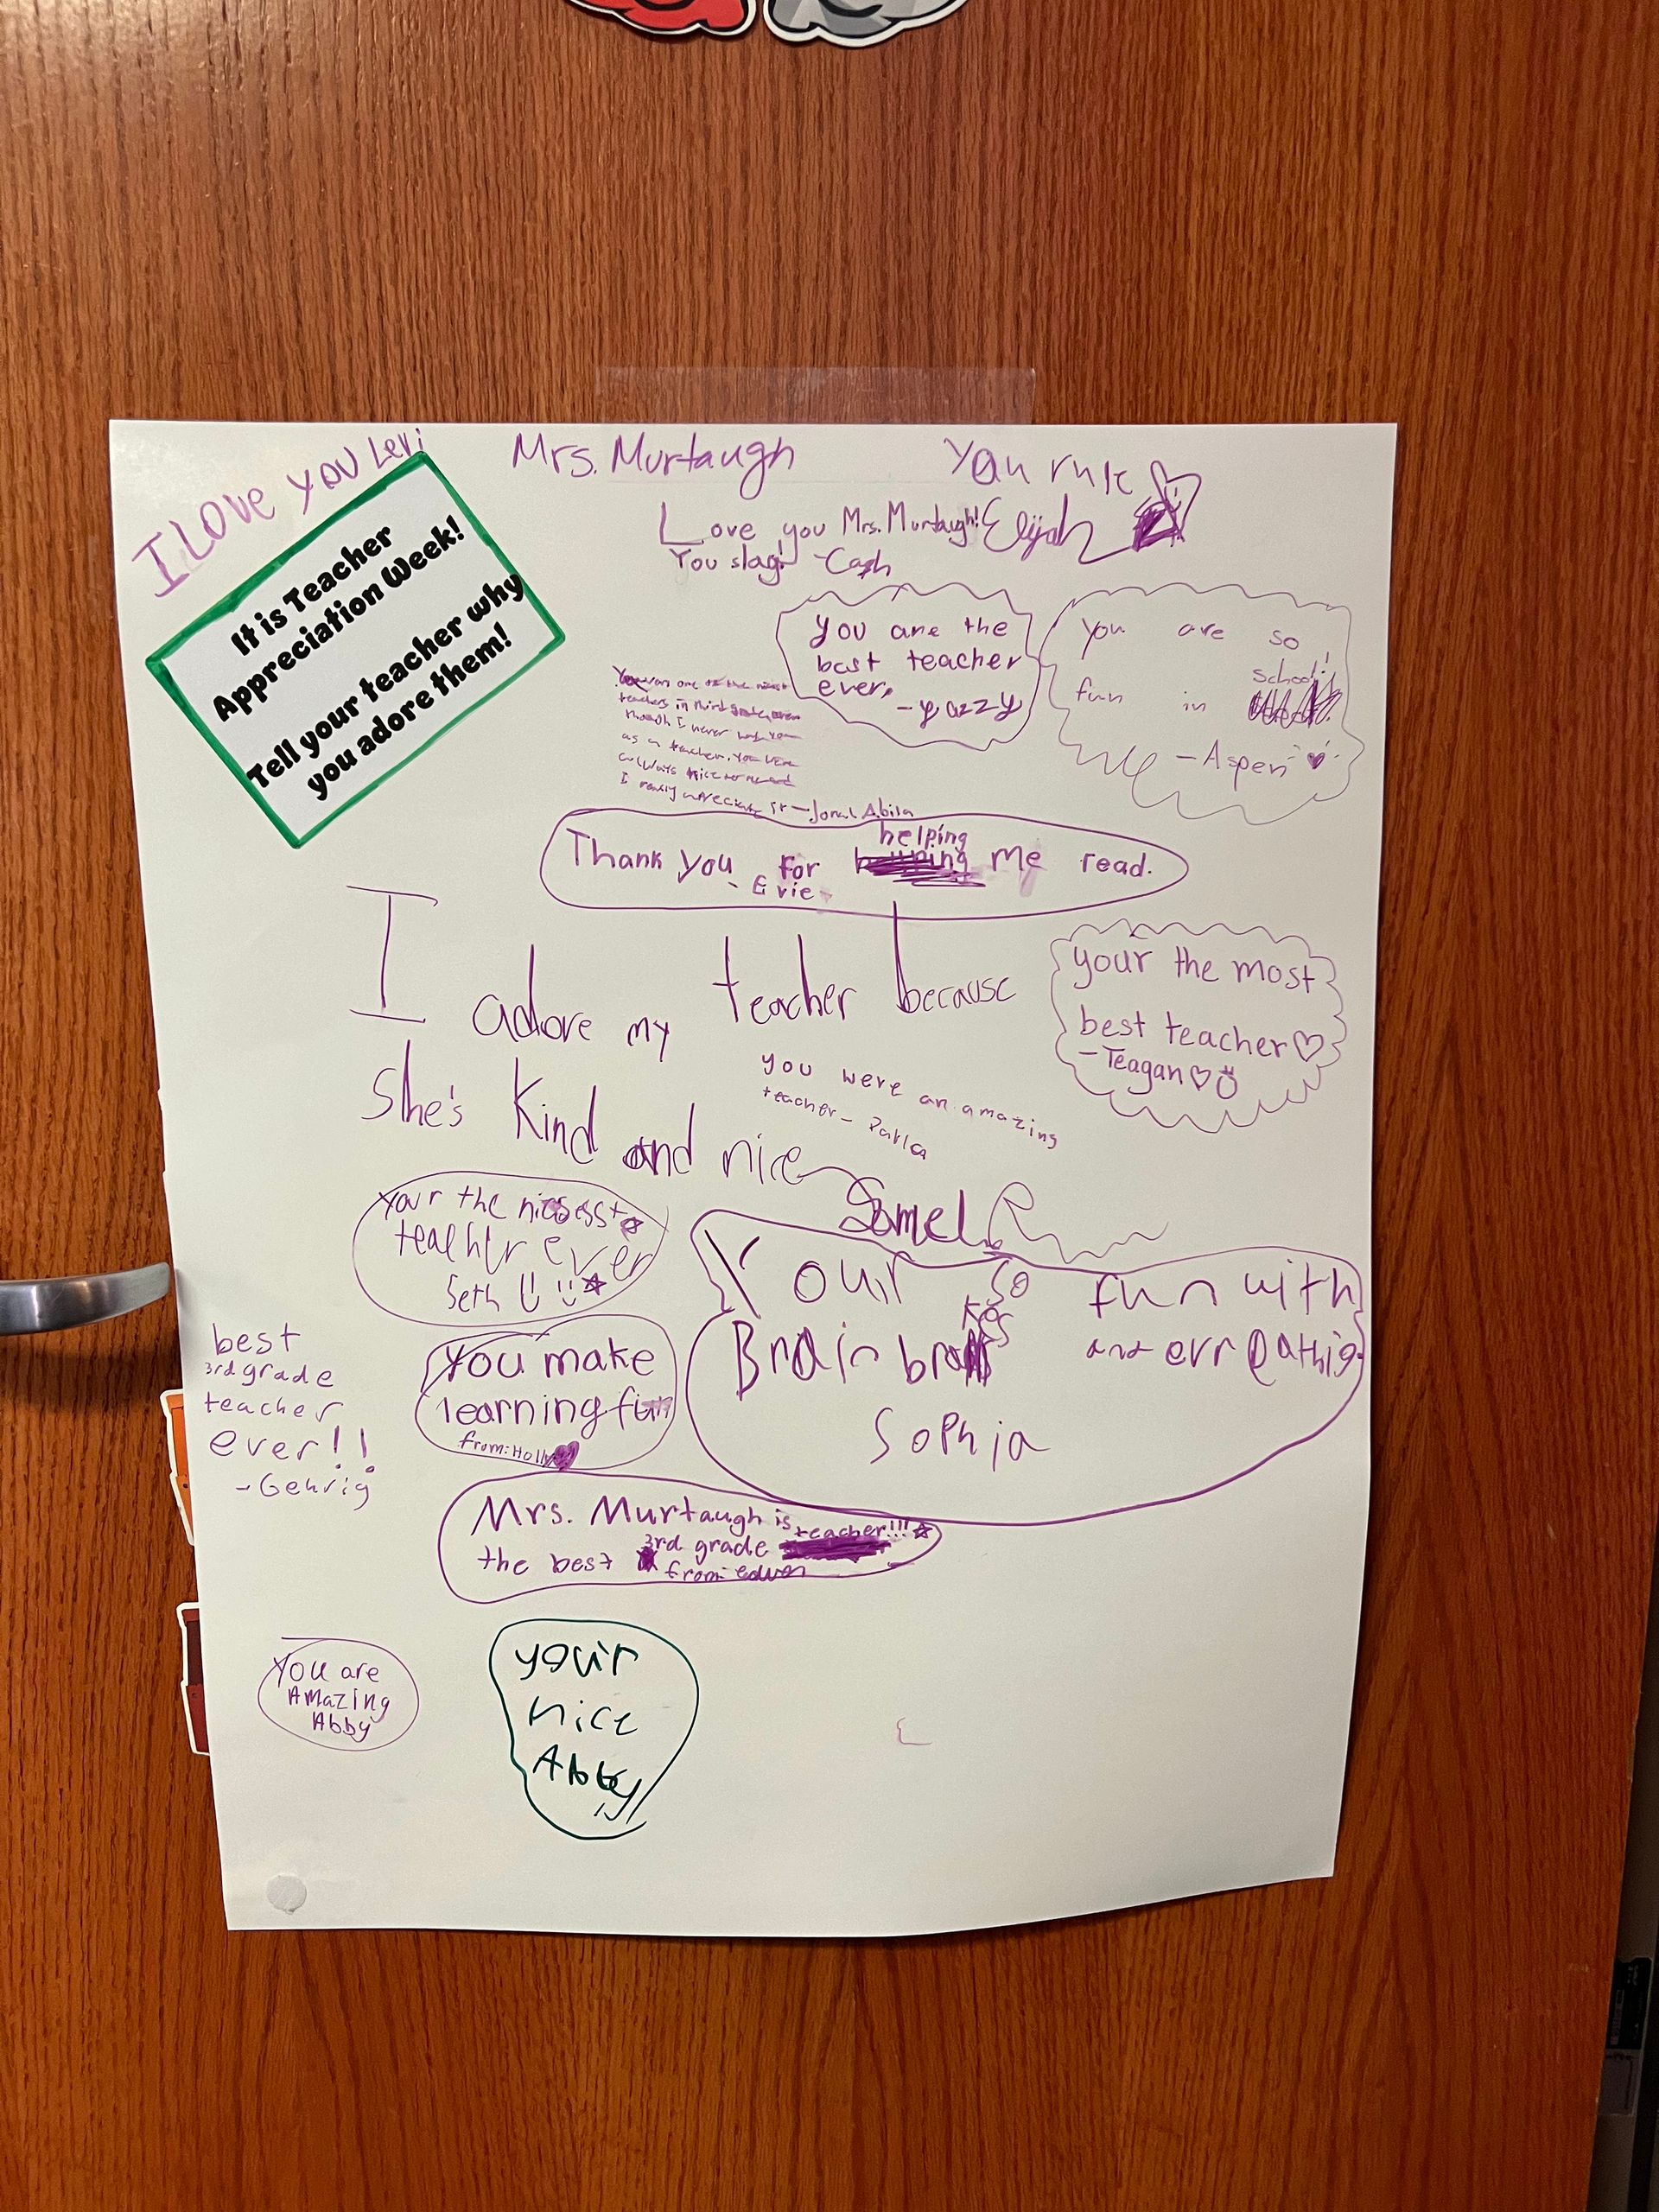 I LOVE YOU Levi
Mrs. Murtaugh
You rule
It is Teacher
Appreciation Week!
Tell your teacher why
you adore them!
Love you Mrs. Murtaugh! Elijah
You slag! -Cash
you are the
best teacher
ever.
-yazzy
you are so
school!
fun in
-Aspen
You are one of the nicest
teachers in third grade even
though I never had you
as a teacher. You were
always nice to me and
I really appreciate it -Jonal Abila
helping
Thank you for me read.
- Evie -
I adore my teacher because
She's Kind and nice
your the most
best teacher
-Teagan
you were an amazing
teacher-
Your the
teacher ever
Seth
Your so fun with
Brain
kes
and
Sophia
best
3rd grade
teacher
ever!!
-Gehrig
You make
learning fun
from: Holly
Mrs. Murtaugh is teacher!!!
the best 3rd grade
from:
You are
Amazing
Abby
your
nice
Abby